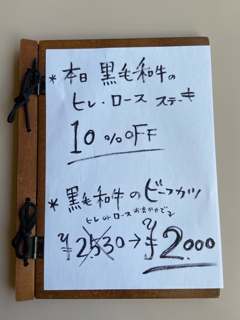 * 本日 黒毛和牛の
ヒレ・ロース ステーキ
10%OFF
* 黒毛和牛のビーフカツ
ヒレorロースおまかせで
¥2530→¥2000